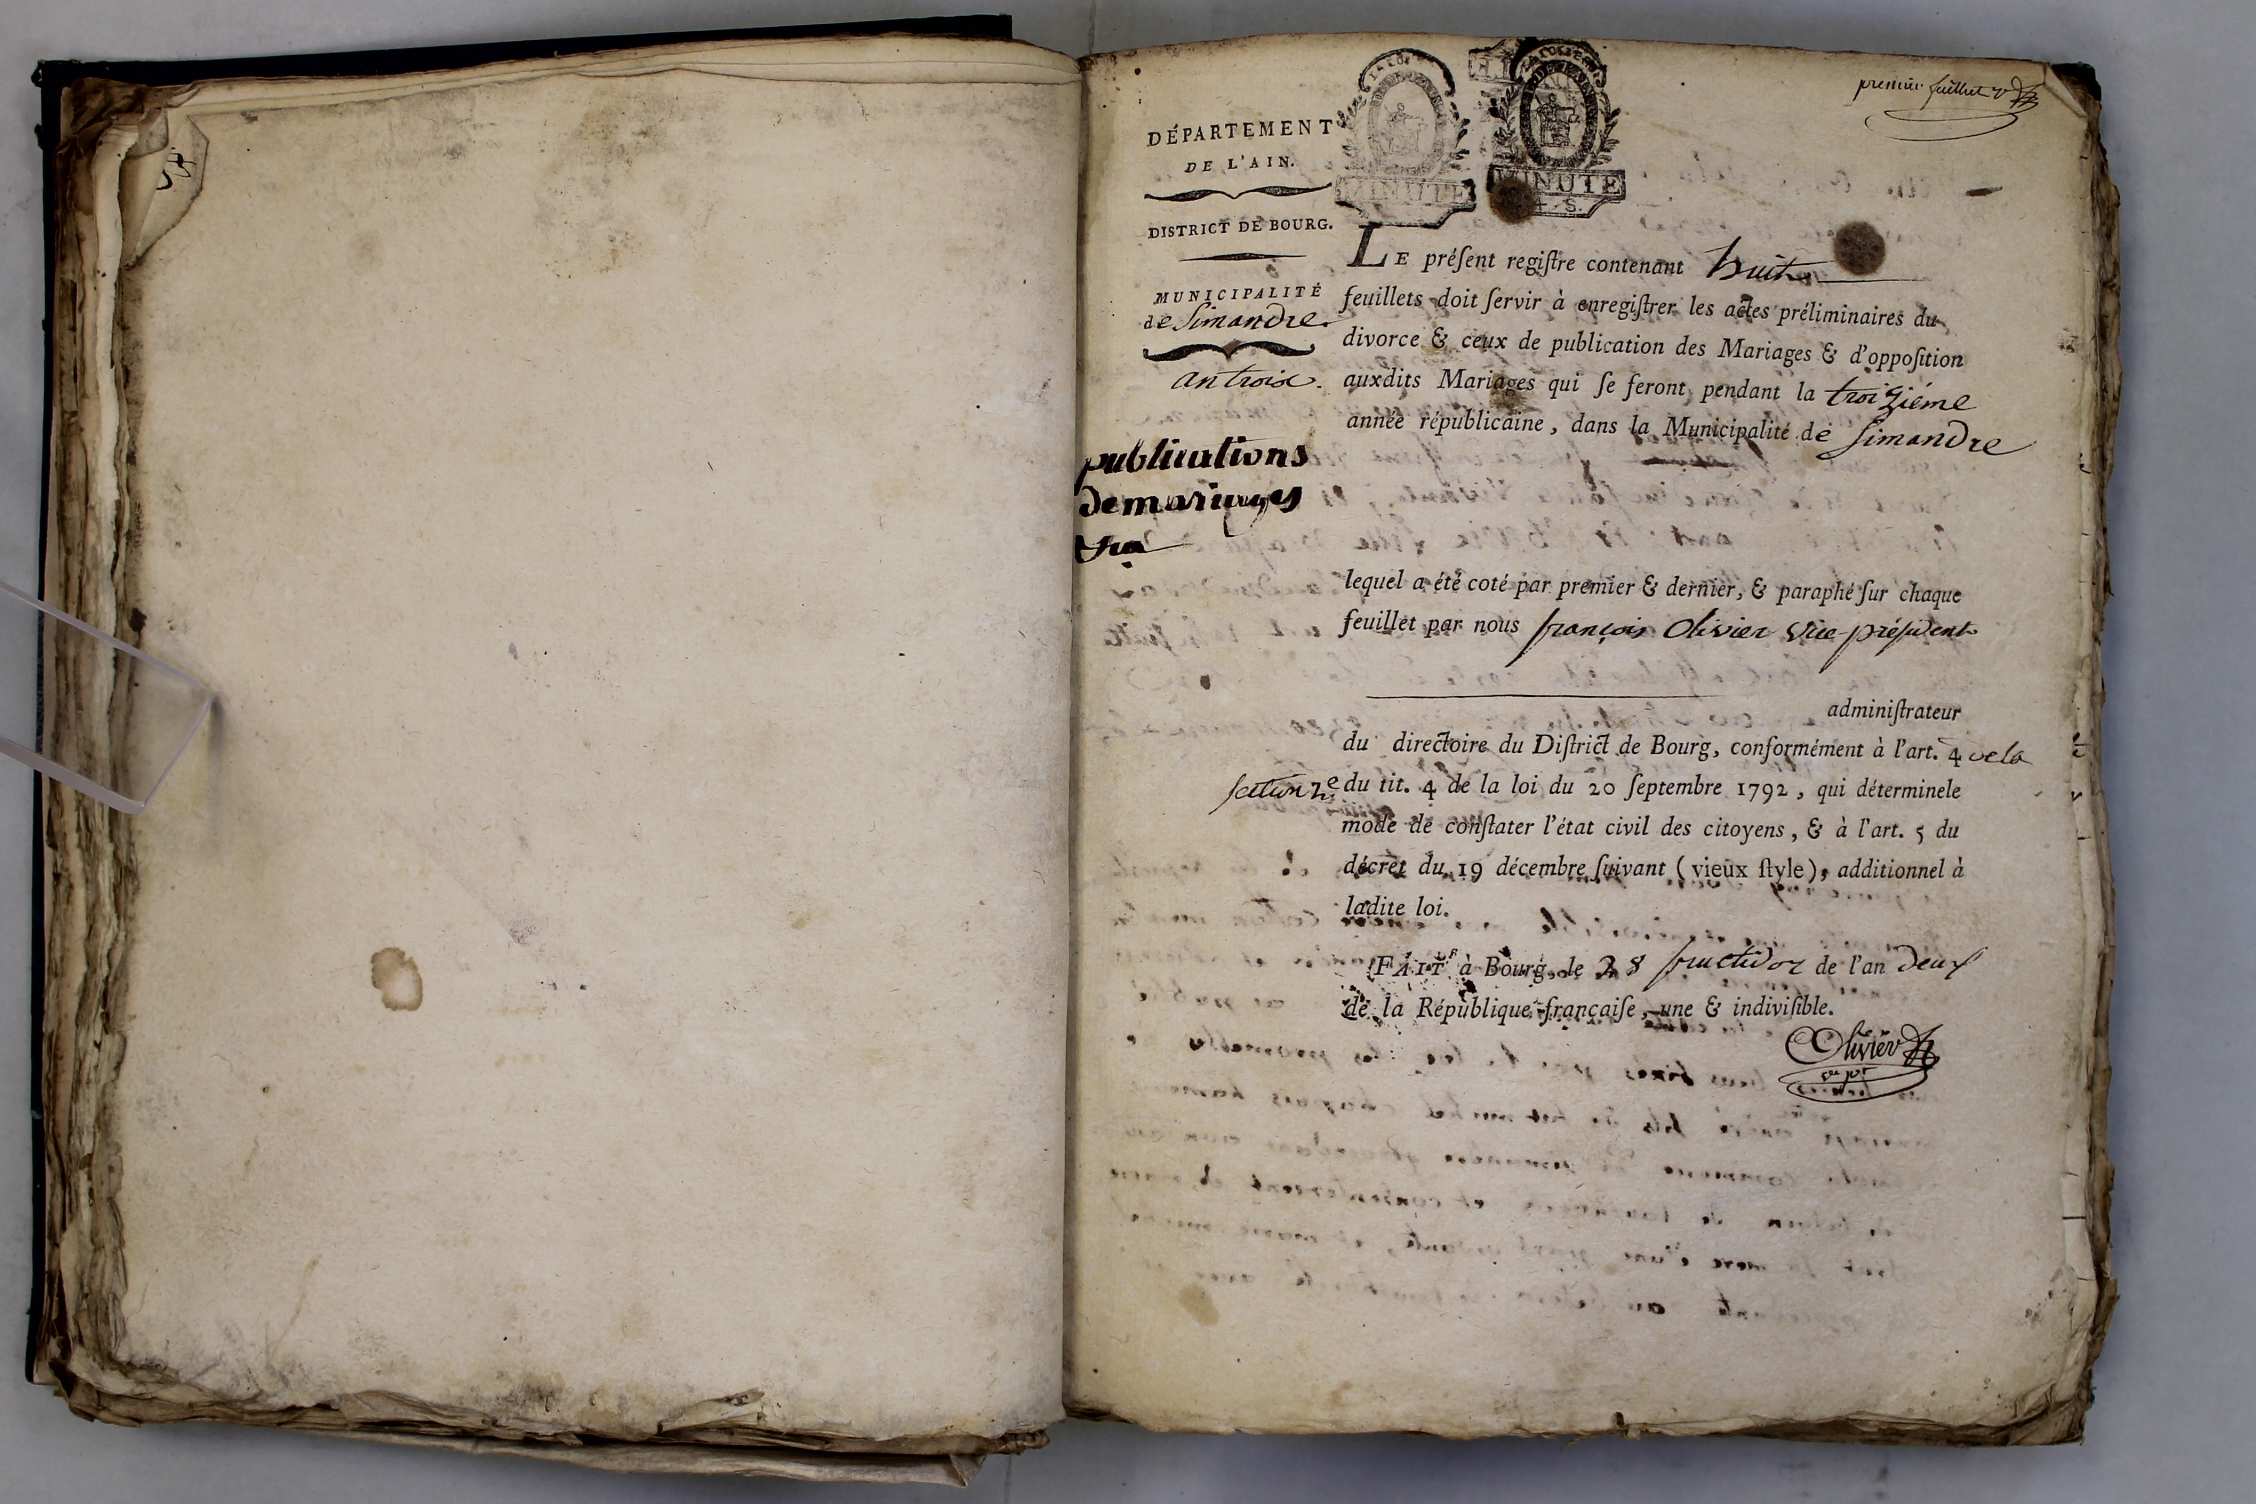 premier feuillet
DÉPARTEMENT
DE L'AIN.
DISTRICT DE BOURG.
MUNICIPALITÉ
de Simandre.
an trois.
publications
de mariages
MINUTE
MINUTE
4. S.
LE préſent regiſtre contenant huit
feuillets doit ſervir à enregiſtrer les actes préliminaires du
divorce & ceux de publication des Mariages & d'oppoſition
auxdits Mariages qui ſe feront pendant la troiziéme
année républicaine, dans la Municipalité de Simandre
lequel a été coté par premier & dernier, & paraphé ſur chaque
feuillet par nous françois Olivier Vice-préſident
adminiſtrateur
du directoire du Diſtrict de Bourg, conformément à l'art. 4 de la
section 2e du tit. 4 de la loi du 20 ſeptembre 1792, qui déterminele
mode de conſtater l'état civil des citoyens, & à l'art. 5 du
décret du 19 décembre ſuivant (vieux ſtyle), additionnel à
ladite loi.
FAIT à Bourg, le 28 fructidor de l'an deux
de la République françaiſe, une & indiviſible.
Olivier